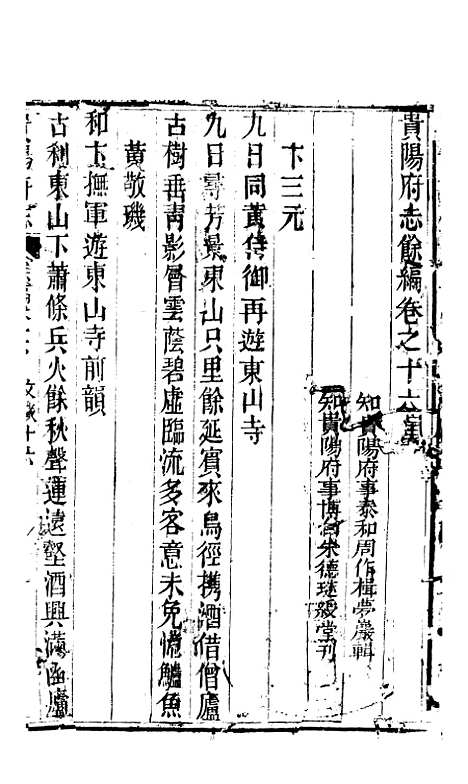 貴陽府志餘編卷之十六
知貴陽府事泰和周作楫夢巖輯
知貴陽府事博 朱德璲綬堂刊
卞三元
九日同黃侍御再遊東山寺
九日尋芳景東山只里餘延賓來鳥徑攜酒借僧廬
古樹垂靑影層雲蔭碧虛臨流多客意未免憶鱸魚
黃敬璣
和卞撫軍遊東山寺前韻
古刹東山下蕭條兵火餘秋聲連遠壑酒興滿函廬